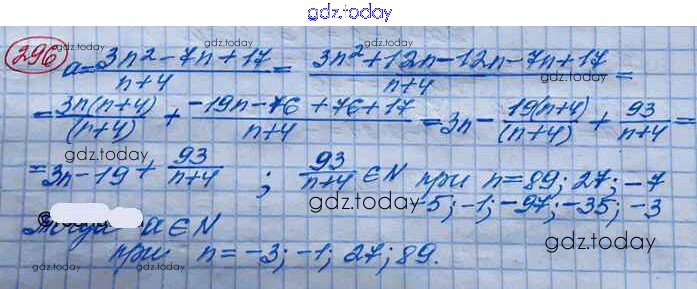 gdz.today
296 a = \frac{3n^2 - 7n + 17}{n+4} = \frac{3n^2 + 12n - 12n - 7n + 17}{n+4} =
= \frac{3n(n+4)}{(n+4)} + \frac{-19n - 76 + 76 + 17}{n+4} = 3n - \frac{19(n+4)}{(n+4)} + \frac{93}{n+4} =
= 3n - 19 + \frac{93}{n+4} ; \frac{93}{n+4} ∈ N при n = 89; 27; -7
-5; -1; -97; -35; -3
Тогда a ∈ N
при n = -3; -1; 27; 89.
gdz.today
gdz.today
gdz.today
gdz.today
gdz.today
gdz.today
gdz.today
gdz.today
gdz.today
gdz.today
gdz.today
gdz.today